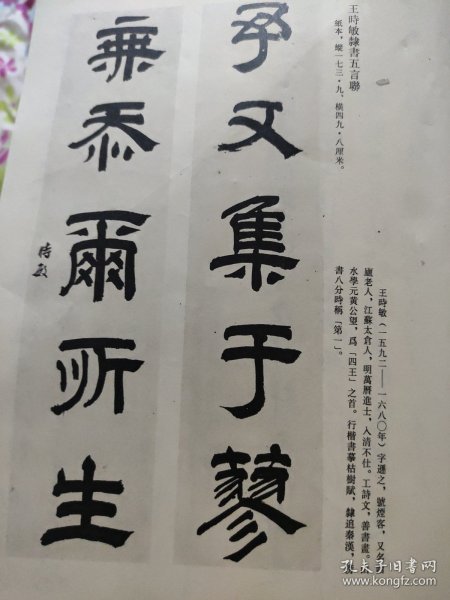 王時敏隸書五言聯
紙本，縱一七三·九、橫四九·八厘米。
王時敏（一五九二——一六八〇年）字遜之，號煙客，又名
廬老人，江蘇太倉人，明萬曆進士，入清不仕。工詩文，善書畫。
水學元黃公望，爲「四王」之首。行楷書摹枯樹賦，隸追秦漢，
書八分時稱「第一」。
予又集于蓼
無忝爾所生
時敏
孔夫子旧书网